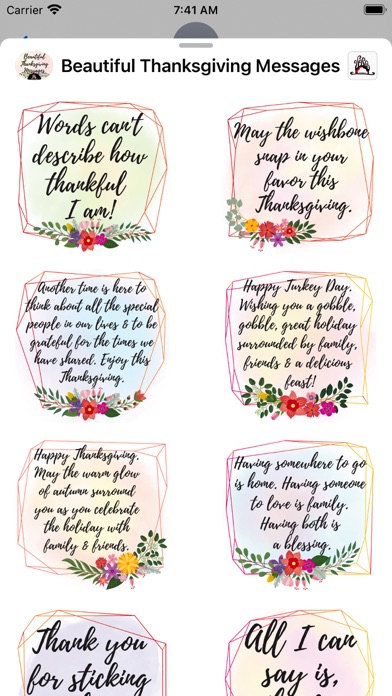 Carrier 7:41 AM
Beautiful Thanksgiving Messages
Beautiful
Thanksgiving
Messages
Words can't
describe how
thankful
I am!
May the wishbone
snap in your
favor this
Thanksgiving.
Another time is here to
think about all the special
people in our lives & to be
grateful for the times we
have shared. Enjoy this
Thanksgiving.
Happy Turkey Day.
Wishing you a gobble,
gobble, great holiday
surrounded by family,
friends & a delicious
feast!
Happy Thanksgiving.
May the warm glow
of autumn surround
you as you celebrate
the holiday with
family & friends.
Having somewhere to go
is home. Having someone
to love is family.
Having both is
a blessing.
Thank you
for sticking
All I can
say is,